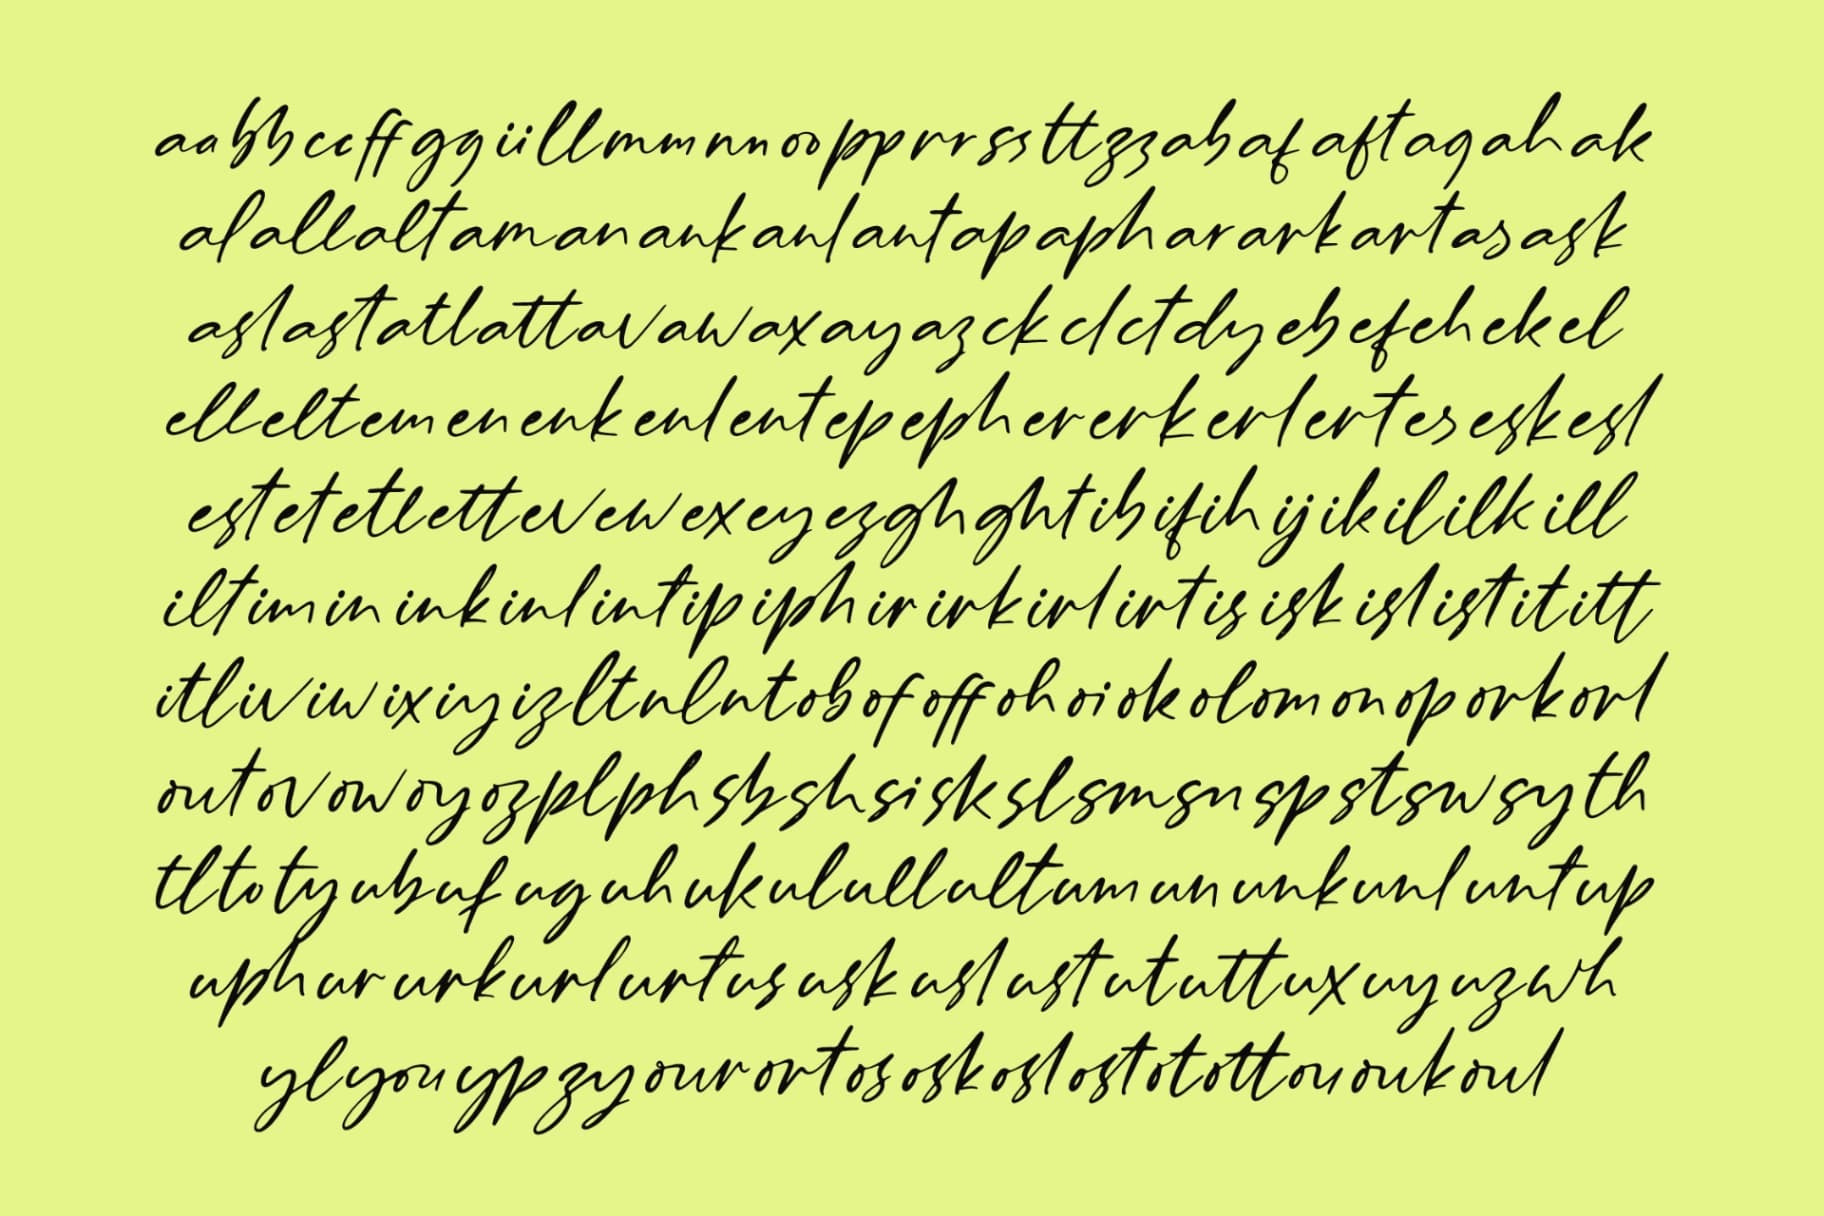 aa bb cc ff gg ii ll mm nn oo pp rr ss tt zz ab af aft ag ah ak
al all alt am an ank anl ant ap aph ar ark art as ask
asl ast atl att av aw ax ay az ck cl ct dy eb ef eh ek el
ell elt em en enk enl ent ep eph er erk erl ert es esk esl
est et etl ett ev ew ex ey ez gh ght ib if ih ij ik il ilk ill
ilt im in ink inl int ip iph ir irk irl irt is isk isl ist it itt
itl iv iw ix iy iz lt nl nt ob of off oh oi ok ol om on op ork orl
out ov ow oy oz pl ph sb sh si sk sl sm sn sp st sw sy th
tl to ty ub uf ug uh uk ul ull ult um un unk unl unt up
uph ur urk url urt us usk usl ust ut utt ux uy uz wh
yl you yp zy our ort os osk osl ost ot ott ou ouk oul